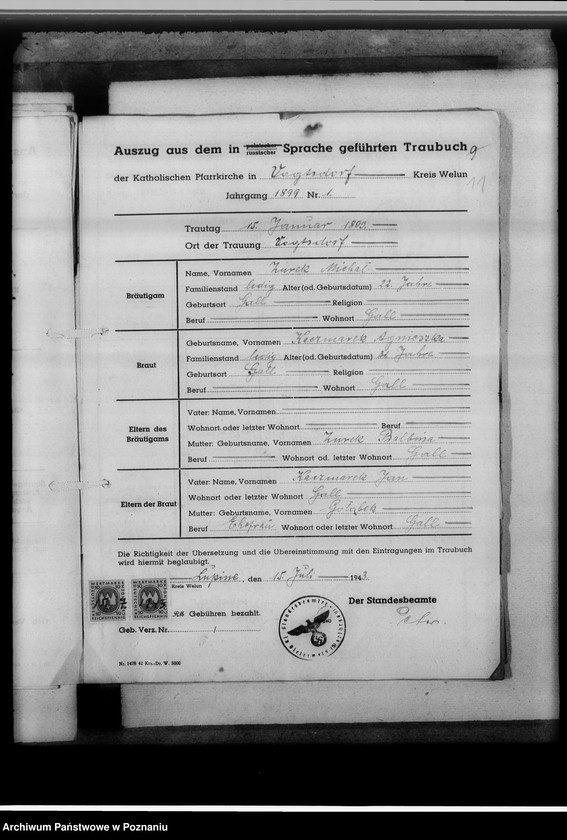 Auszug aus dem in polnischer russischer Sprache geführten Traubuch 9
der Katholischen Pfarrkirche in Vogtsdorf Kreis Welun
11
Jahrgang 1899 Nr. 1.
Trautag 15. Januar
Ort der Trauung Vogtsdorf
Bräutigam
Name, Vornamen Zurek Michal
Familienstand ledig Alter (od. Geburtsdatum) 22 Jahre
Geburtsort Gall Religion
Beruf Wohnort Gall
Braut
Geburtsname, Vornamen Kaczmarek Agnieszka
Familienstand ledig Alter (od. Geburtsdatum) Jahre
Geburtsort Gall Religion
Beruf Wohnort Gall
Eltern des Bräutigams
Vater: Name, Vornamen
Wohnort oder letzter Wohnort Beruf
Mutter: Geburtsname, Vornamen Zurek Balbina
Beruf Wohnort od. letzter Wohnort Gall
Eltern der Braut
Vater: Name, Vornamen Kaczmarek Jan
Wohnort oder letzter Wohnort Gall
Mutter: Geburtsname, Vornamen Golabek
Beruf Ehefrau Wohnort oder letzter Wohnort Gall
Die Richtigkeit der Übersetzung und die Übereinstimmung mit den Eintragungen im Traubuch
wird hiermit beglaubigt.
Lupine, den 15. Juli 1943
Kreis Welun
Der Standesbeamte
RM Gebühren bezahlt.
Peter
Geb. Verz. Nr. /
Nr. 1478 42 Krs.-Dr. W. 5000
Archiwum Państwowe w Poznaniu